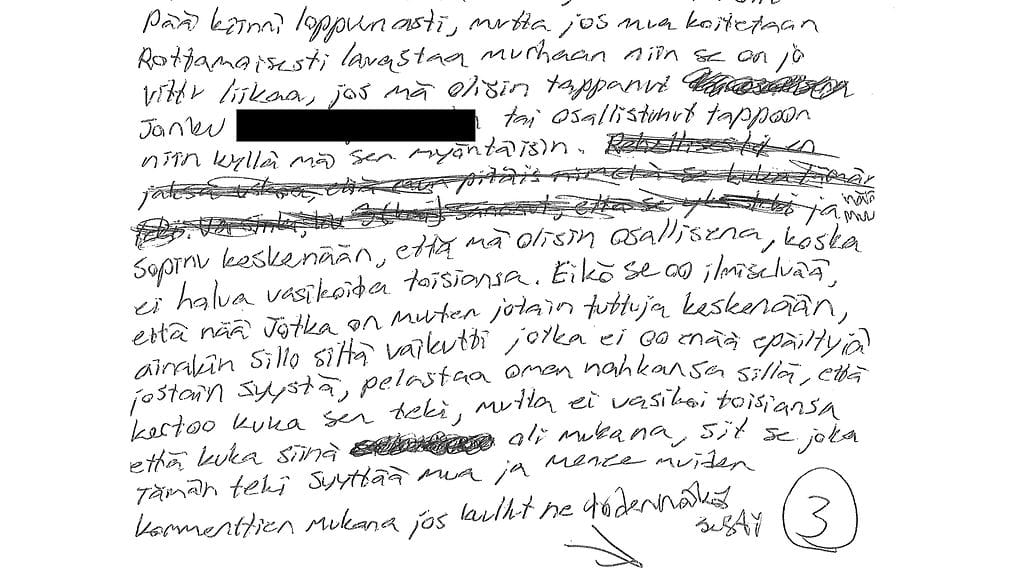 Pää kiinni loppun asti, mutta jos mua koitetaan
Rottamaisesti lavastaa murhaan niin se on jo
vittu liikaa, jos mä olisin tappanut
Janku tai osallistunut tappoon
niin kyllä mä sen myäntäisin. Rehellisesti en
jaksa uskoa, että mun pitäis nimetä se kuka tämän
teki. Varsinki, ku sanonut, että se yks teki ja nää mu
sopinu keskenään, että mä olisin osallisena, koska
ei halua vasikoida toisiansa. Eikö se oo ilmiselvää,
että nää Jotka on muuten jotain tuttuja keskenään,
ainakin sillo siltä vaikutti jotka ei oo enää epäiltyjä
jostain syystä, pelastaa oman nahkansa sillä, että
kertoo kuka sen teki, mutta ei vasikoi toisiansa
että kuka siinä oli mukana, sit se joka
Tämän teki syyttää mua ja menee muiden
kommenttien mukana jos kuullut ne todennäkö
sesti
3